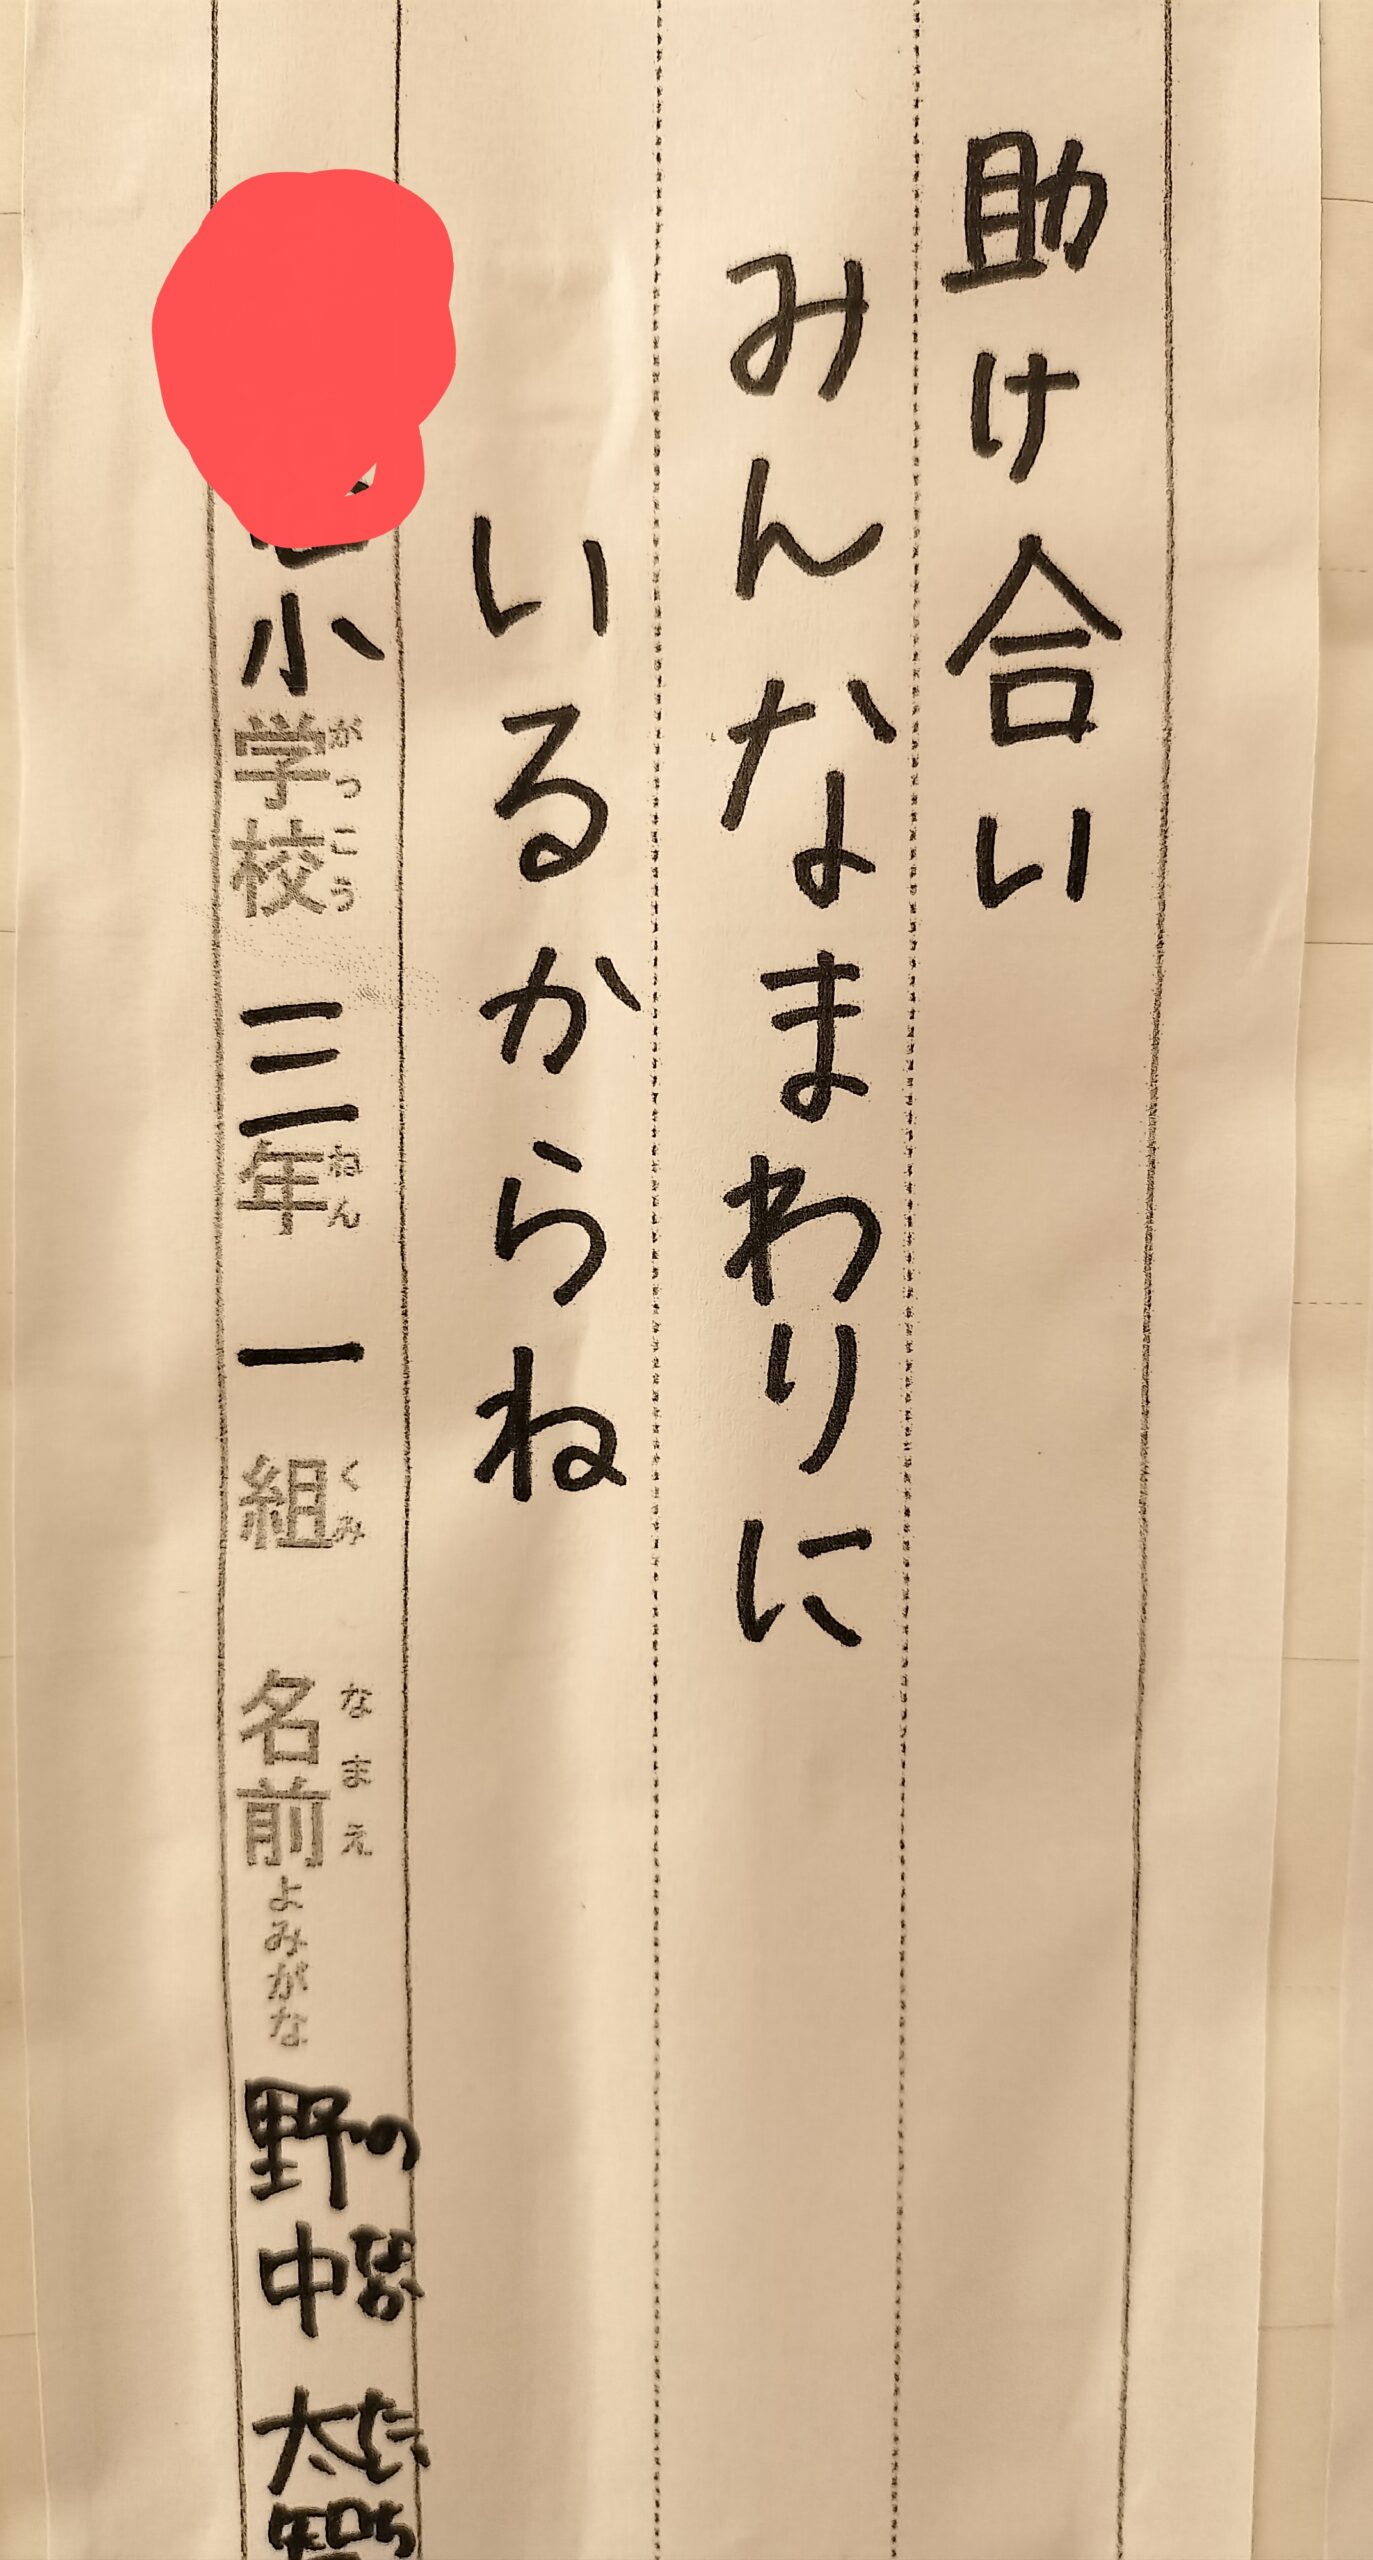 助け合い
みんなまわりに
いるからね
小学校 三年 一組 名前 よみがな 野中 太智
がっこう ねん くみ なまえ の なか たいち